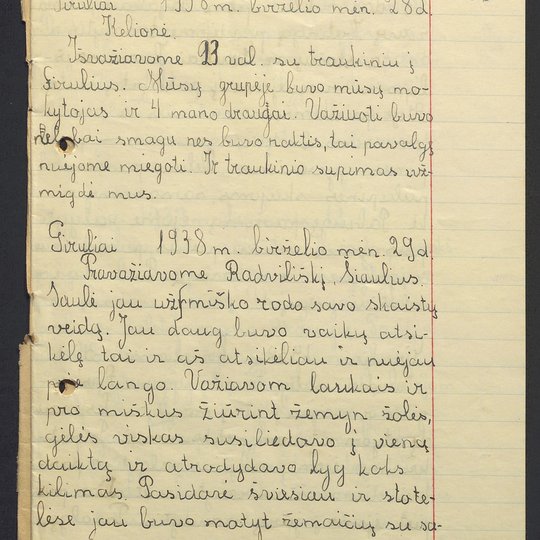 Giruliai 1938 m. birželio mėn. 28 d.
Kelionė.
Išvažiavome 23 val. su traukiniu į
Girulius. Mūsų grupėje buvo mūsų mo-
kytojas ir 4 mano draugai. Važiuoti buvo
nelabai smagu nes buvo naktis, tai pavalgę
nuėjome miegoti. Ir traukinio supimas už-
migdė mus.
Giruliai 1938 m. birželio mėn. 29 d.
Pravažiavome Radviliškį, Šiaulius.
Saulė jau už miško rodo savo skaistų
veidą. Jau daug buvo vaikų atsi-
kėlę tai ir aš atsikėliau ir nuėjau
prie lango. Važiavom laukais ir
pro miškus žiūrint žemyn žolės,
gėlės viskas susiliedavo į vieną
daiktą ir atrodydavo lyg koks
kilimas. Pasidarė šviesiau ir stote-
lėse jau buvo matyt žemaičių su sa-